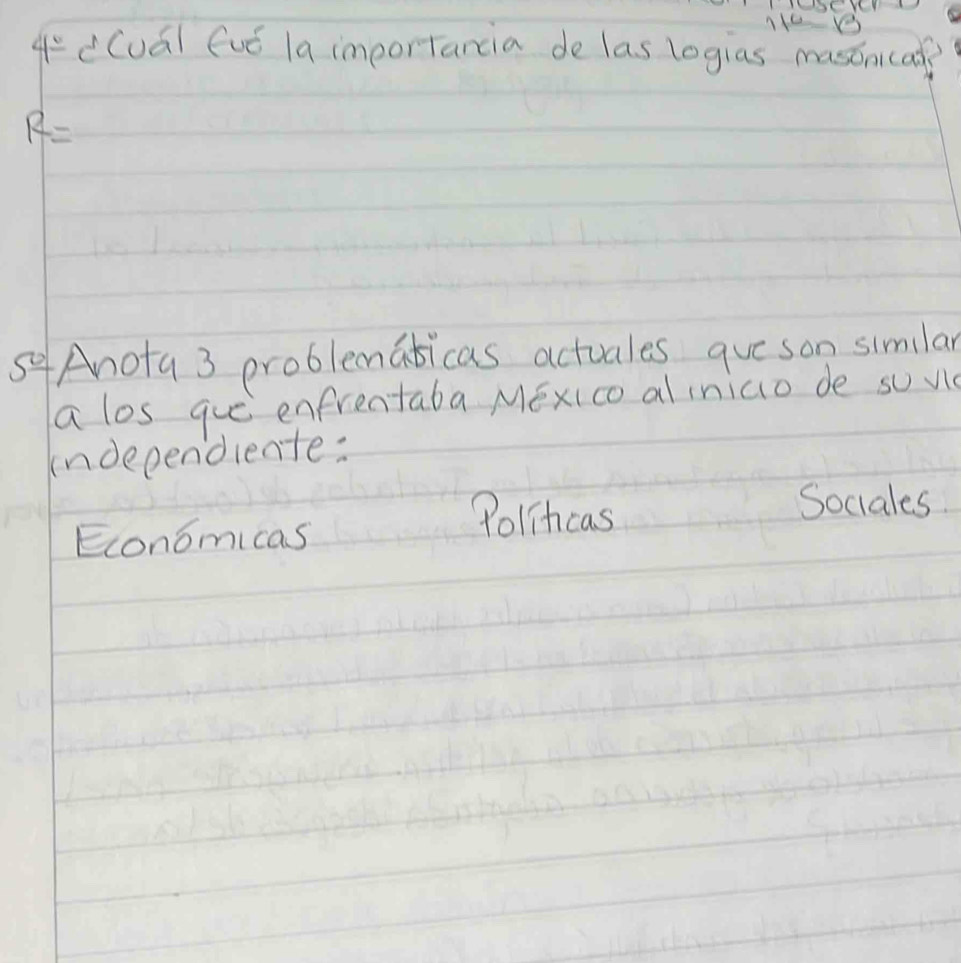 4º ¿Cuál fué la importancia de las logias masónicas?
R=
5º Anota 3 problemáticas actuales que son similar
a los que enfrentaba México al inicio de su
independiente:
Económicas Políticas Sociales.